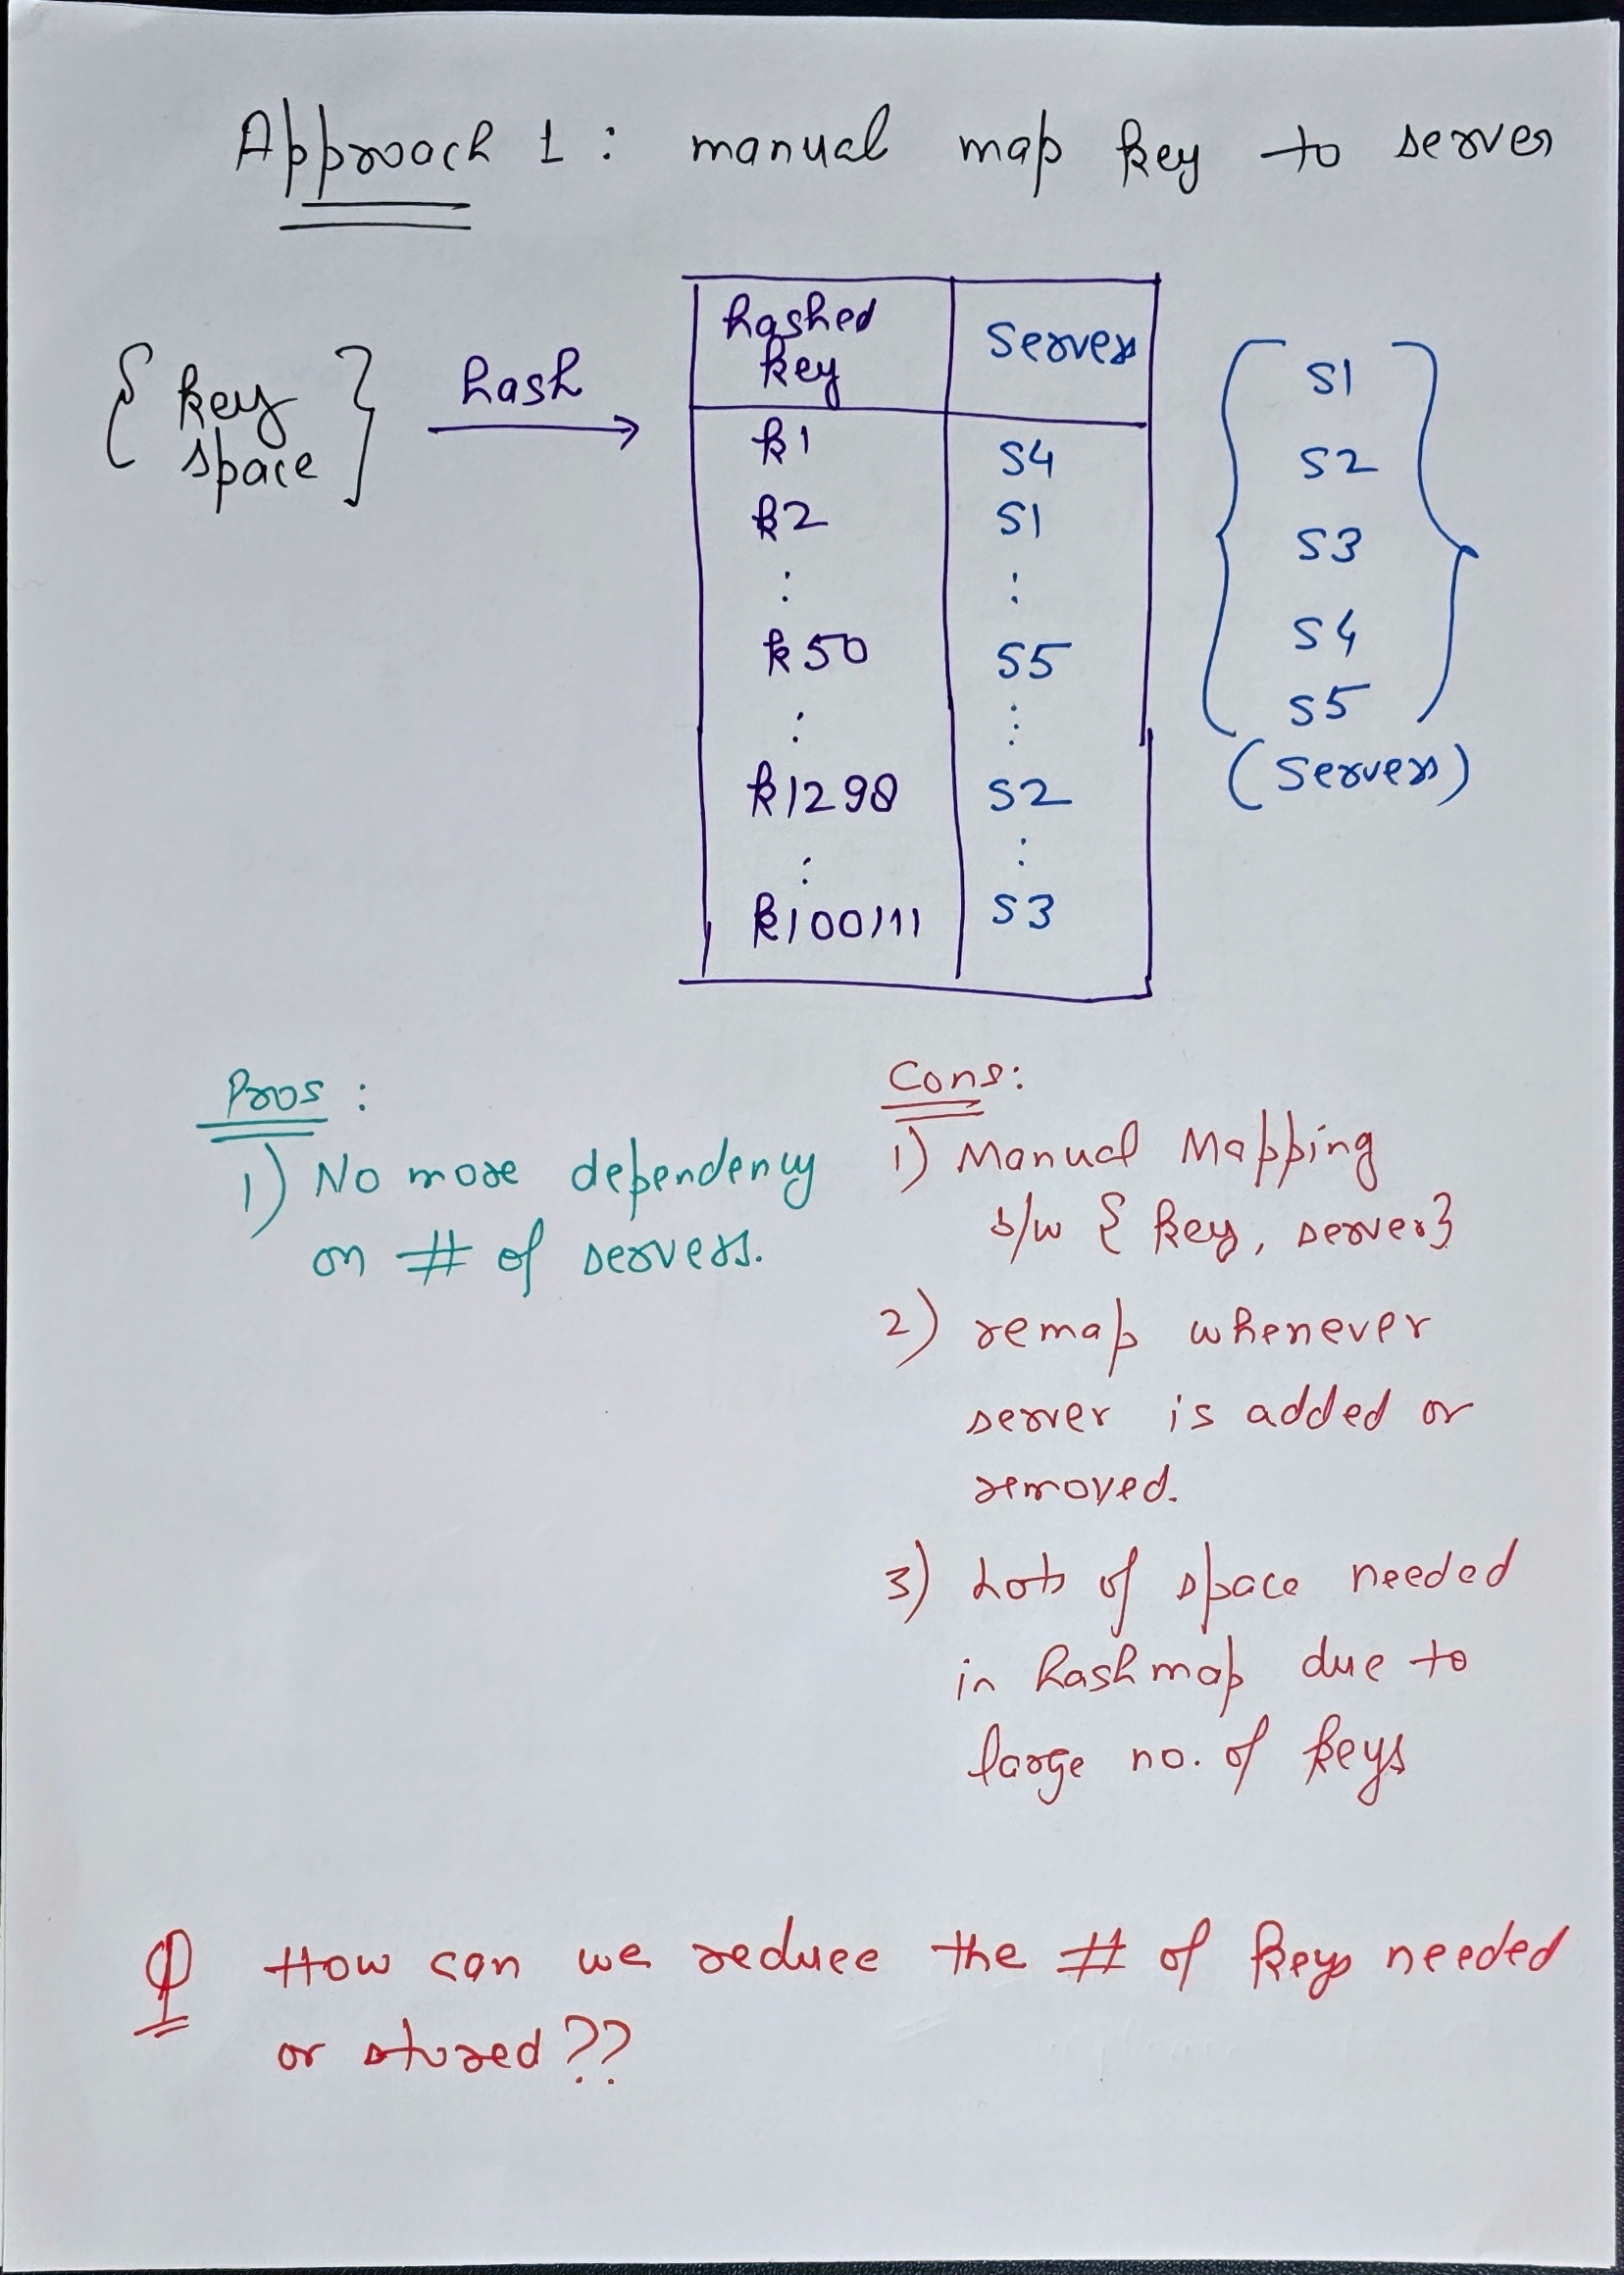 Approach 1 : manual map key to server
{ key space }
hash
hashed key | Server
k1 | S4
k2 | S1
: | :
k50 | S5
: | :
k1298 | S2
: | :
k100111 | S3
S1
S2
S3
S4
S5
(Servers)
Pros :
1) No more dependency
on # of servers.
Cons:
1) Manual Mapping
b/w { key, server}
2) remap whenever
server is added or
removed.
3) Lots of space needed
in hashmap due to
large no. of keys
Q How can we reduce the # of keys needed
or stored ??